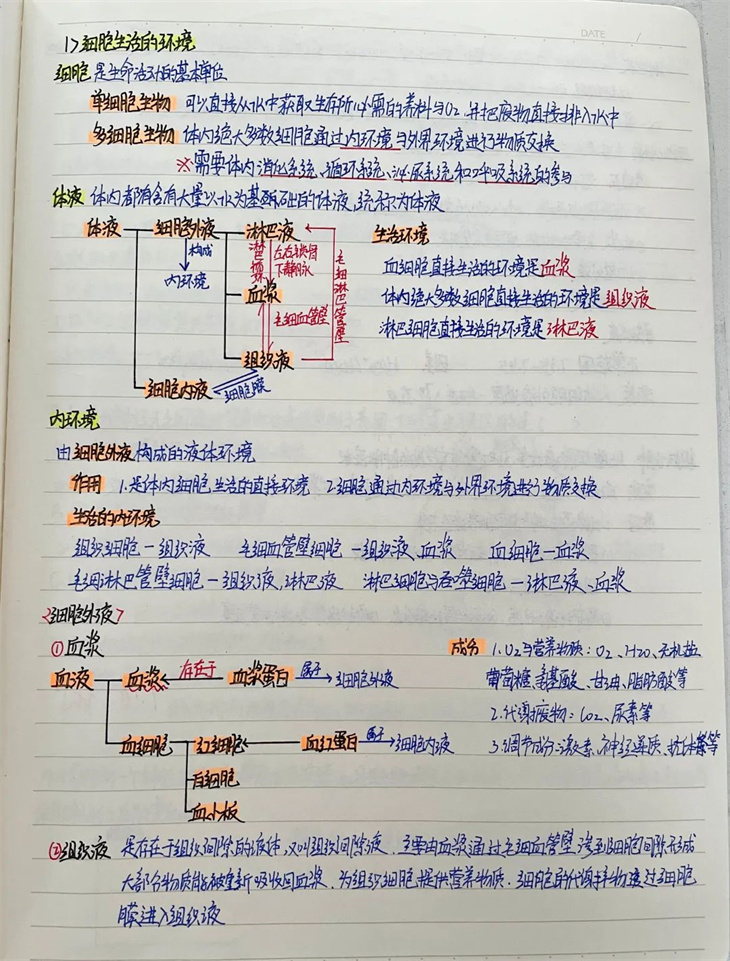 DATE /
1>细胞生活的环境
细胞 是生命活动的基本单位
单细胞生物 可以直接从水中获取生存所必需的养料与O2,并把废物直接排入水中
多细胞生物 体内绝大多数细胞通过内环境与外界环境进行物质交换
※需要体内消化系统、循环系统、泌尿系统和呼吸系统的参与
体液 体内都有含有大量以水为基础的体液,统称为体液
体液 细胞外液 淋巴液
构成
内环境
淋巴循环
左右锁骨
下静脉
毛细淋巴管壁
血浆
毛细血管壁
组织液
细胞内液 细胞膜
生活环境
血细胞直接生活的环境是血浆
体内绝大多数细胞直接生活的环境是组织液
淋巴细胞直接生活的环境是淋巴液
内环境
由细胞外液构成的液体环境
作用 1.是体内细胞生活的直接环境 2.细胞通过内环境与外界环境进行物质交换
生活的内环境
组织细胞-组织液 毛细血管壁细胞-组织液、血浆 血细胞-血浆
毛细淋巴管壁细胞-组织液,淋巴液 淋巴细胞与吞噬细胞-淋巴液、血浆
<细胞外液>
①血浆
血液 血浆 存在于 血浆蛋白 属于 细胞外液
血细胞 红细胞 血红蛋白 属于 细胞内液
白细胞
血小板
成分 1.O2与营养物质:O2、H2O、无机盐
葡萄糖、氨基酸、甘油、脂肪酸等
2.代谢废物:CO2、尿素等
3.调节成分:激素、神经递质、抗体等
②组织液 是存在于组织间隙的液体,又叫组织间隙液.主要由血浆通过毛细血管壁渗到细胞间隙形成
大部分物质能够被重新吸收回血浆.为组织细胞提供营养物质.细胞的代谢产物透过细胞
膜进入组织液